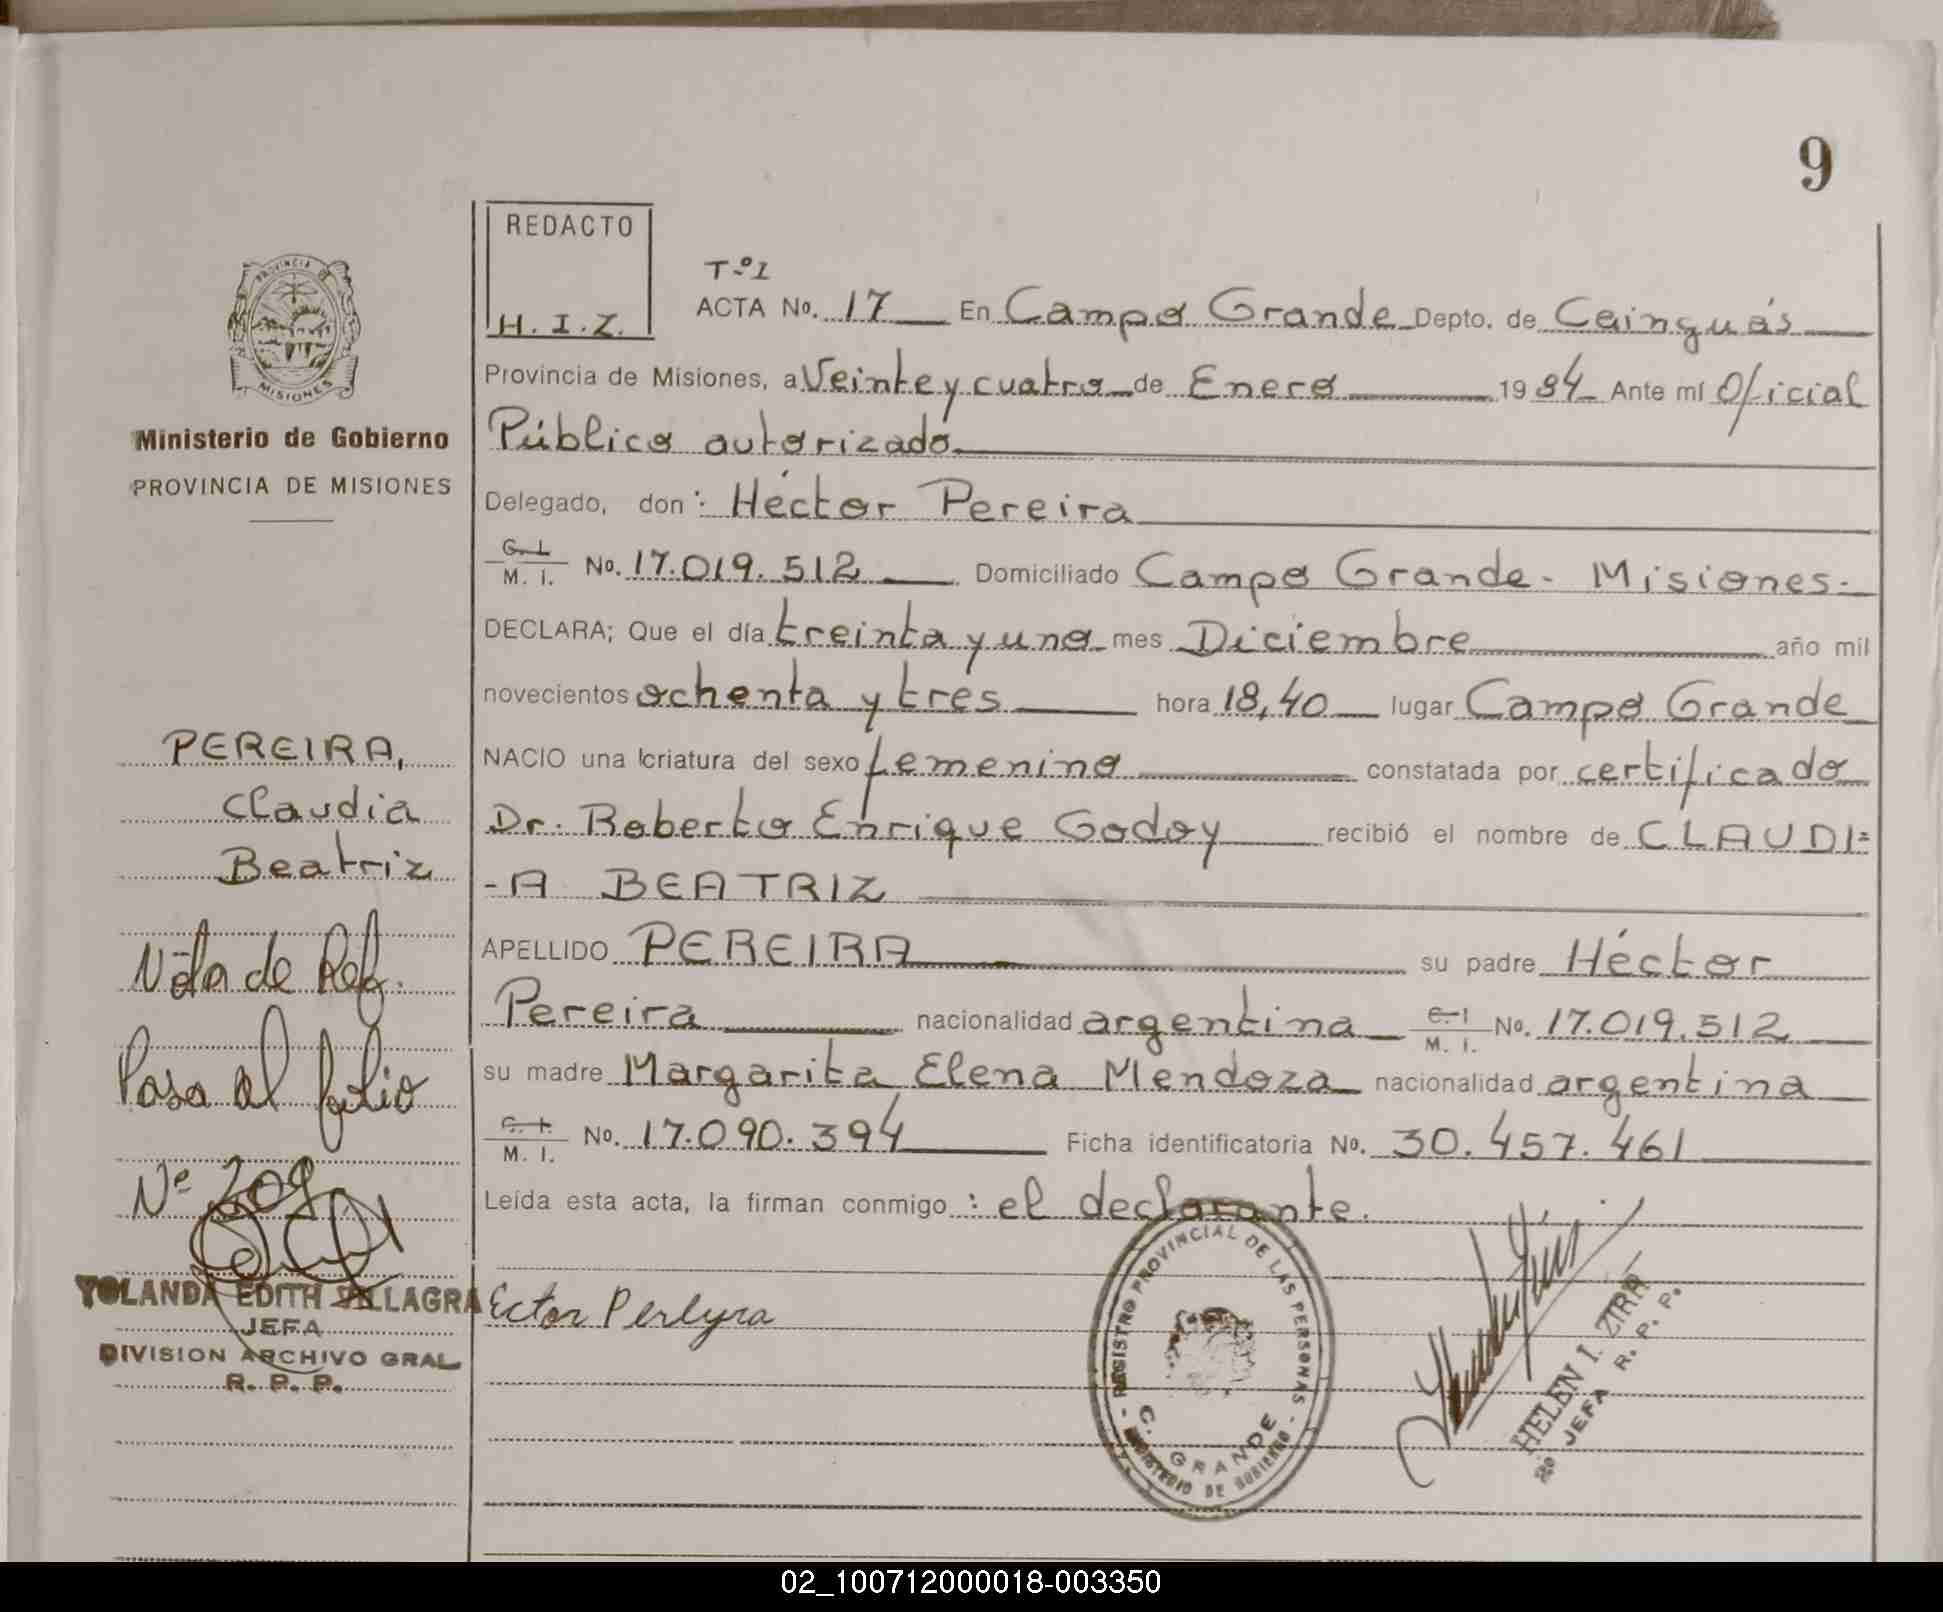 9
REDACTO
H. I. Z.
Tº I
ACTA No. 17 En Campo Grande Depto. de Cainguás
Provincia de Misiones, a Veinte y cuatro de Enero 1984 Ante mí Oficial
Público autorizado.
Delegado, don: Héctor Pereira
C. I.
M. I. No. 17.019.512 Domiciliado Campo Grande - Misiones.-
DECLARA; Que el día treinta y uno mes Diciembre año mil
novecientos ochenta y tres hora 18,40 lugar Campo Grande
NACIO una criatura del sexo femenino constatada por certificado
Dr. Roberto Enrique Godoy recibió el nombre de CLAUDI=
-A BEATRIZ
APELLIDO PEREIRA su padre Héctor
Pereira nacionalidad argentina C. I.
M. I. No. 17.019.512
su madre Margarita Elena Mendoza nacionalidad argentina
C. I.
M. I. No. 17.090.394 Ficha identificatoria No. 30.457.461
Leída esta acta, la firman conmigo: el declarante.
Ector Perlyra
REGISTRO PROVINCIAL DE LAS PERSONAS
C. GRANDE
MINISTERIO DE GOBIERNO
HELEN I. ZIRR
2º JEFA R. P. P.
PROVINCIA DE
MISIONES
Ministerio de Gobierno
PROVINCIA DE MISIONES
PEREIRA,
Claudia
Beatriz
Nota de Ref.
Pasa al folio
Nº 209
YOLANDA EDITH VILLAGRA
JEFA
DIVISION ARCHIVO GRAL
R. P. P.
02_100712000018-003350